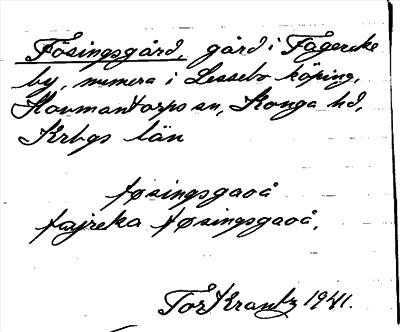 Fösingsgård, gård i Fågereke
by, numera i Lessebo köping,
Hovmantorps sn, Konga hd,
Krbgs län
føsingsgaoå
fajreka føsingsgaoå,
Tor Krantz 1941.